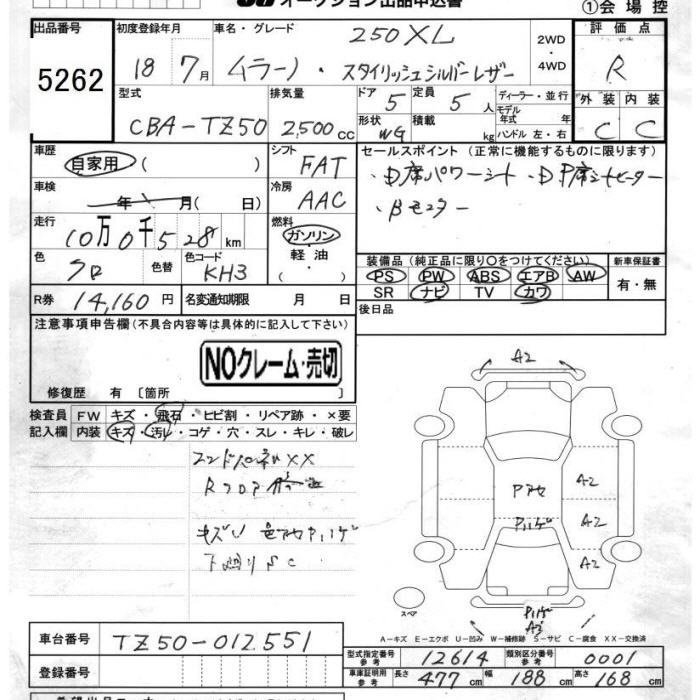 オークション出品申込書
①会場控
出品番号 初度登録年月 車名・グレード 250XL 2WD 評価点
5262 18 7月 ムラーノ・スタイリッシュシルバーレザー ・4WD R
型式 排気量 ドア 5 定員 5人 ディーラー・並行 外装 内装
CBA-TZ50 2,500cc 形状 WG 積載 kg モデル年式 年 ハンドル 左・右 C C
車歴 自家用 ( ) シフト FAT セールスポイント (正常に機能するものに限ります)
・D席パワーシート ・D P席シートヒーター
車検 年 月( 日) 冷房 AAC
・Bモニター
走行 10万0千528km 燃料 ガソリン・軽油 ( )
色 クロ 色替 色コード KH3
装備品(純正品に限り○をつけてください) 新車保証書
PS PW ABS エアB AW 有・無
SR ナビ TV カワ
R券 14,160円 名変通知期限 月 日 後日品
注意事項申告欄(不具合内容等は具体的に記入して下さい)
NOクレーム・売切
修復歴 有 [箇所 ]
検査員 FW キズ・飛石・ヒビ割・リペア跡・×要
記入欄 内装 キズ・汚レ・コゲ・穴・スレ・キレ・破レ
XX
Rフロア
キズU
下廻りSC
A2
A2
A2
A2
Pハゲ
Pハゲ
A2
スペア
A-キズ E-エクボ U-凹み W-補修跡 S-サビ C-腐食 XX-交換済
車台番号 TZ50-012551
型式指定番号 参考 12614 類別区分番号 参考 0001
登録番号
車庫証明用 参考 長さ 477cm 幅 188cm 高さ 168cm